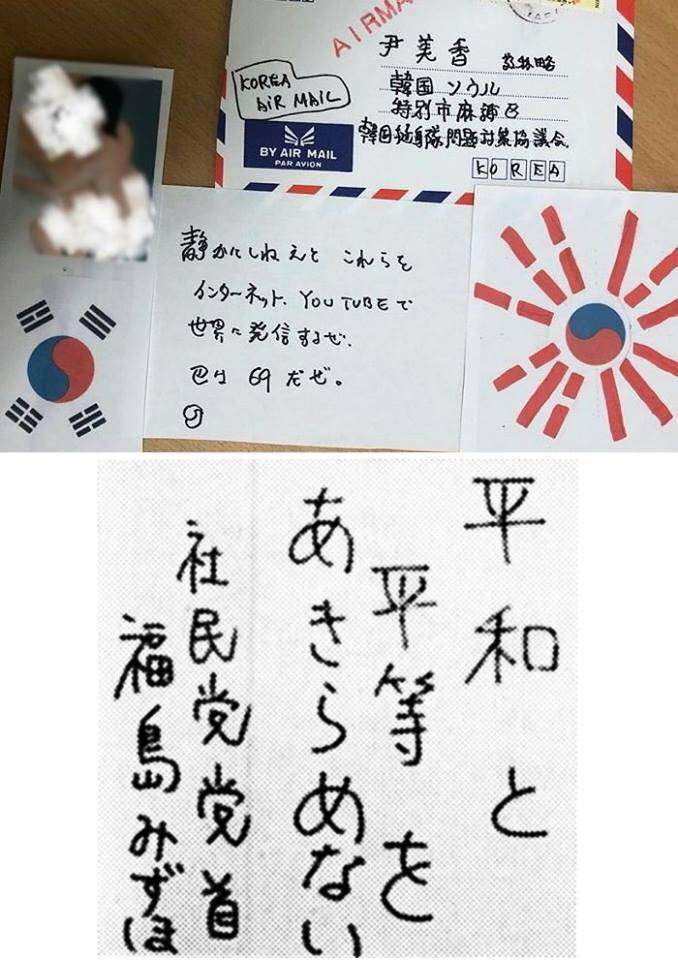 AIRMA
尹美香 敬称略
KOREA
AIR MAIL
韓国ソウル
特別市麻浦区
韓国挺身隊問題対策協議会
BY AIR MAIL
PAR AVION
KOREA
静かにしねえと これらを
インターネット、YOUTUBEで
世界に発信するぜ.
巴は 69 だぜ。
平和と
平等を
あきらめない
社民党党首
福島みずほ